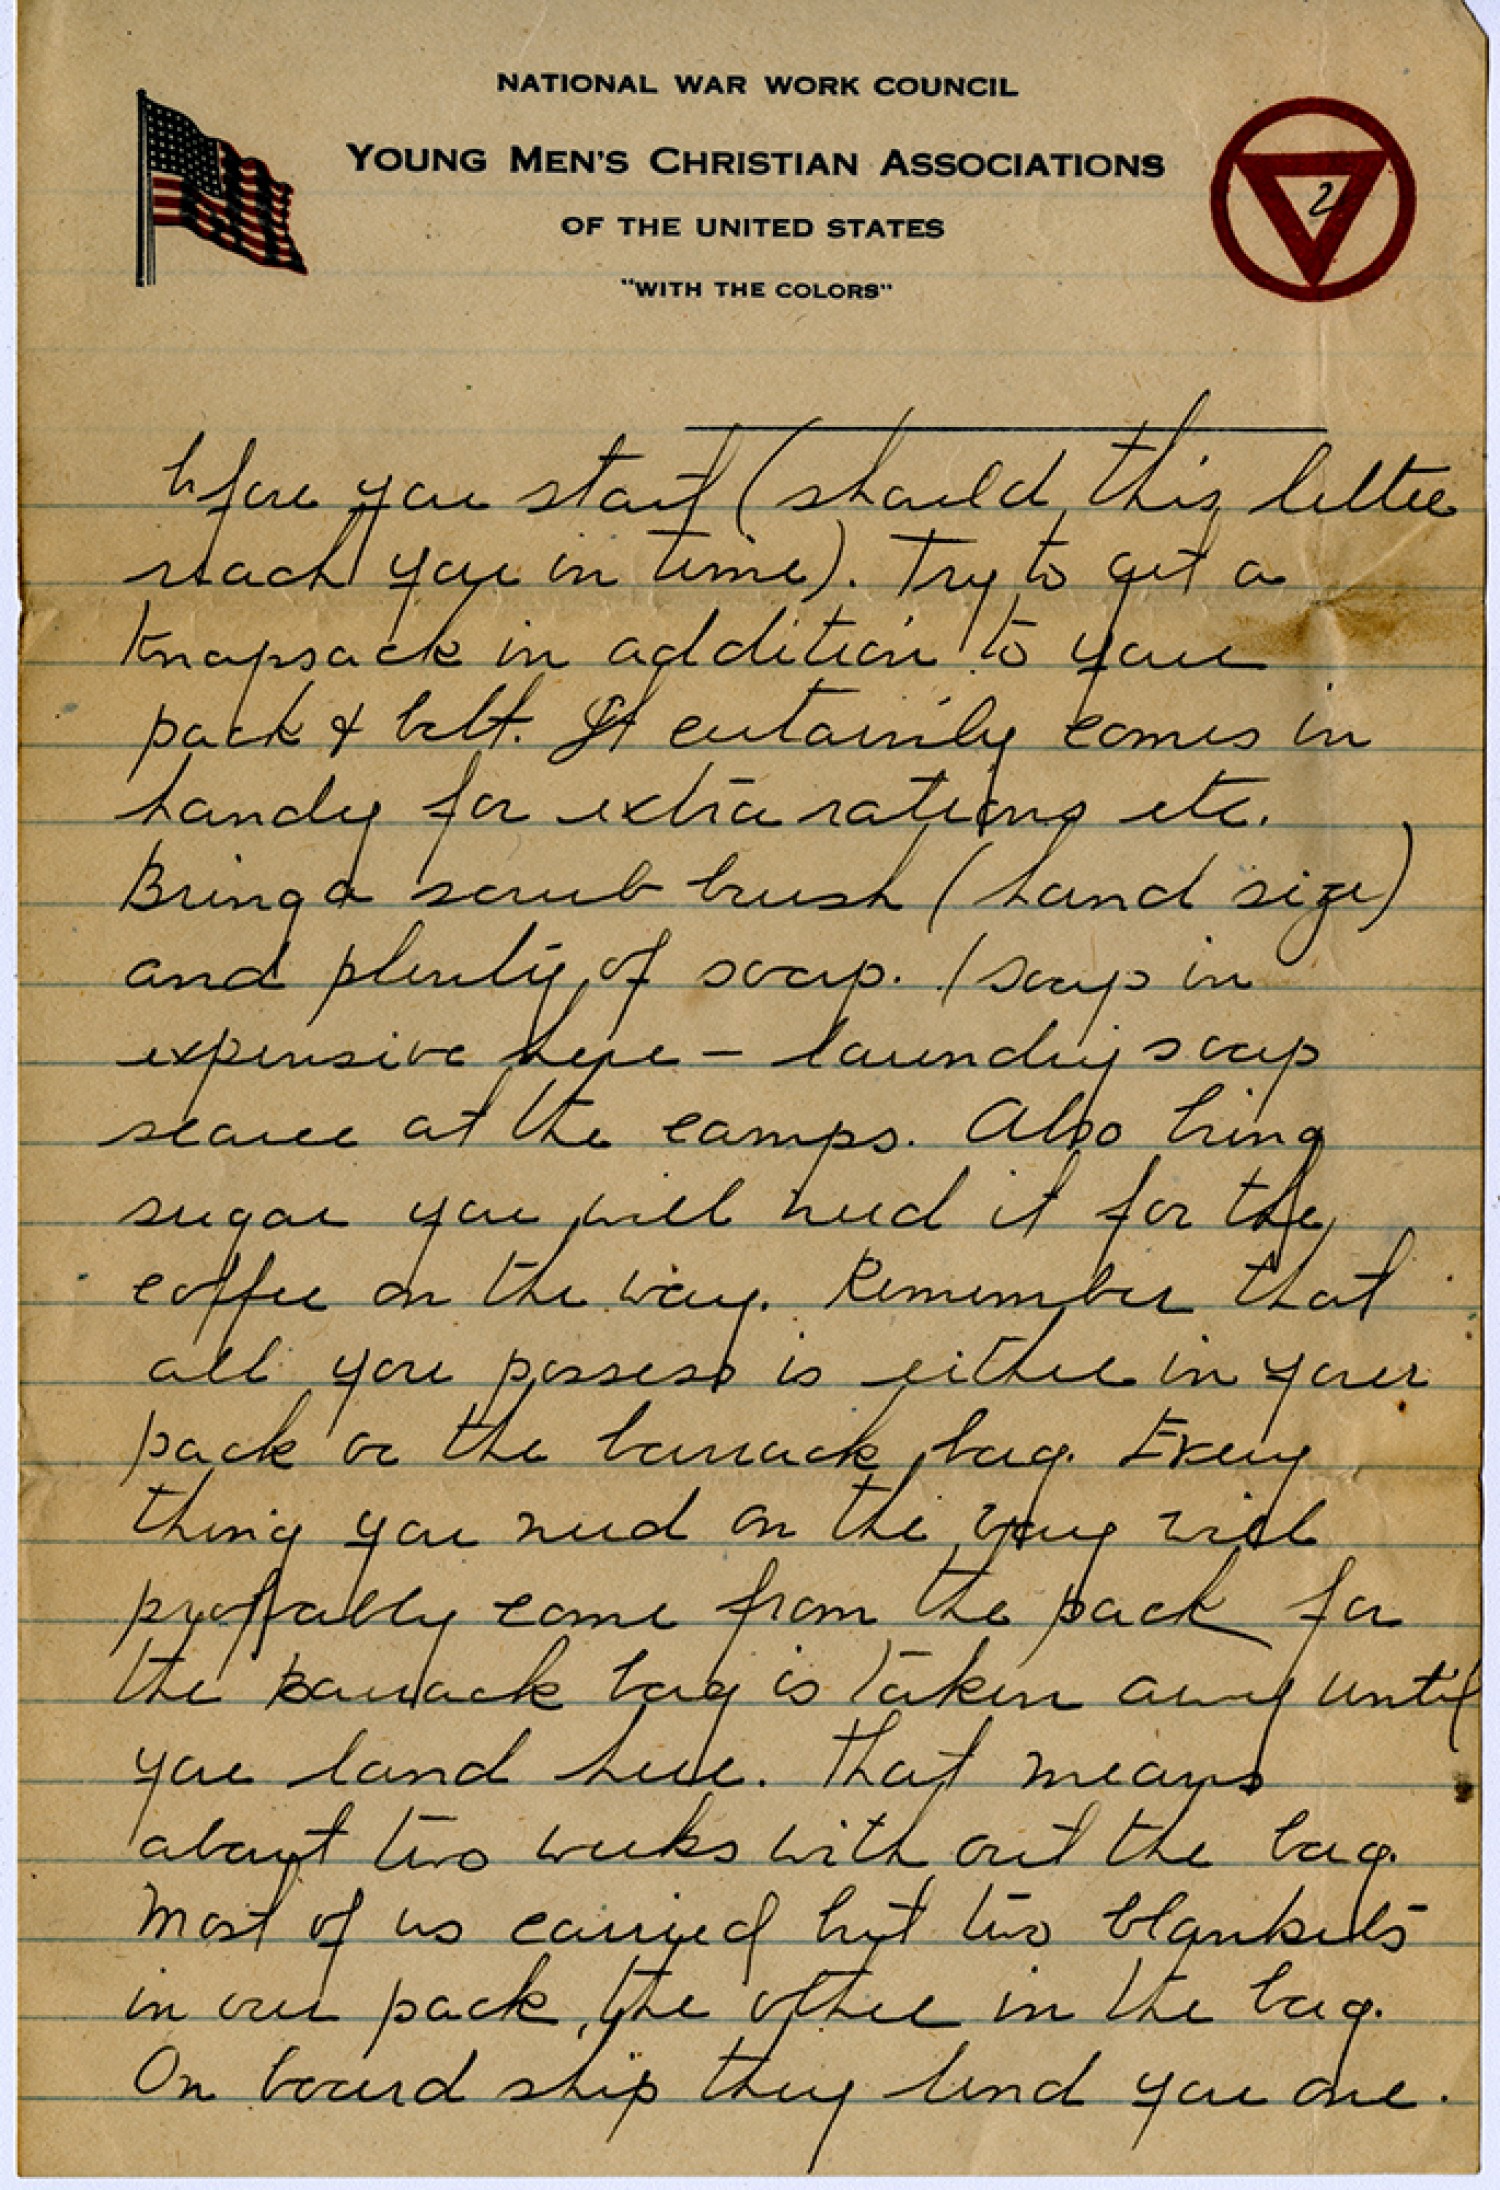 NATIONAL WAR WORK COUNCIL
YOUNG MEN'S CHRISTIAN ASSOCIATIONS
OF THE UNITED STATES
"WITH THE COLORS"
2
before you start (should this letter
reach you in time). Try to get a
Knapsack in addition to your
pack & belt. It certainly comes in
handy for extra rations etc.
Bring a scrub brush (hand size)
and plenty of soap. (soap in
expensive here – laundry soap
scarce at the camps. Also bring
sugar you will need it for the
coffee on the way. Remember that
all you possess is either in your
pack or the barrack bag. Every
thing you need on the way will
probably come from the pack for
the barrack bag is taken away until
you land here. That means
about two weeks with out the bag.
Most of us carried but two blankets
in our pack, the other in the bag.
On board ship they lend you one.